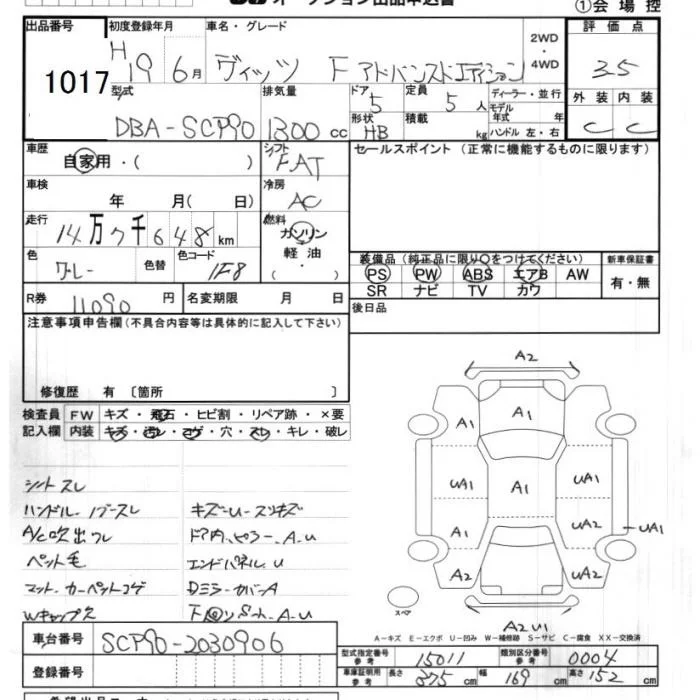 オークション出品申込書
①会場控
出品番号 初度登録年月 車名・グレード 評価点
1017 H19 6月 ヴィッツ F アドバンスドエディション 2WD・4WD 3.5
型式 排気量 ドア 5 定員 5人 ディーラー・並行 外装 内装
DBA-SCP90 1300cc 形状 HB 積載 kg モデル年式 年 ハンドル 左・右 C C
車歴 自家用・( ) シフト FAT セールスポイント (正常に機能するものに限ります)
車検 年 月( 日) 冷房 AC
走行 14万7千648km 燃料 ガソリン 軽油 ( ・ )
色 グレー 色替 色コード 1F8
装備品 (純正品に限り○をつけてください) 新車保証書
PS PW ABS エアB AW 有・無
SR ナビ TV カワ
R券 11090円 名変期限 月 日 後日品
注意事項申告欄 (不具合内容等は具体的に記入して下さい)
修復歴 有 〔箇所 〕
検査員 FW キズ・飛石・ヒビ割・リペア跡・×要
記入欄 内装 キズ・汚レ・コゲ・穴・スレ・キレ・破レ
シートスレ
ハンドル・ノブスレ キズ-U-スリキズ
A/C吹出フレ ドア内、ピラー、A-U
ペット毛 エンドパネル、U
マット・カーペットコゲ Dミラーカバー A
Wキャップ欠
A2
A1
A1
UA1 A1 UA1
A1 UA2 UA1
A2 UA2
スペア
A2 U1
A-キズ E-エクボ U-凹み W-補修跡 S-サビ C-腐食 XX-交換済
車台番号 SCP90-2030906
型式指定番号 参考 15011 類別区分番号 参考 0004
登録番号
車庫証明用 参考 長さ 375cm 幅 169cm 高さ 152cm